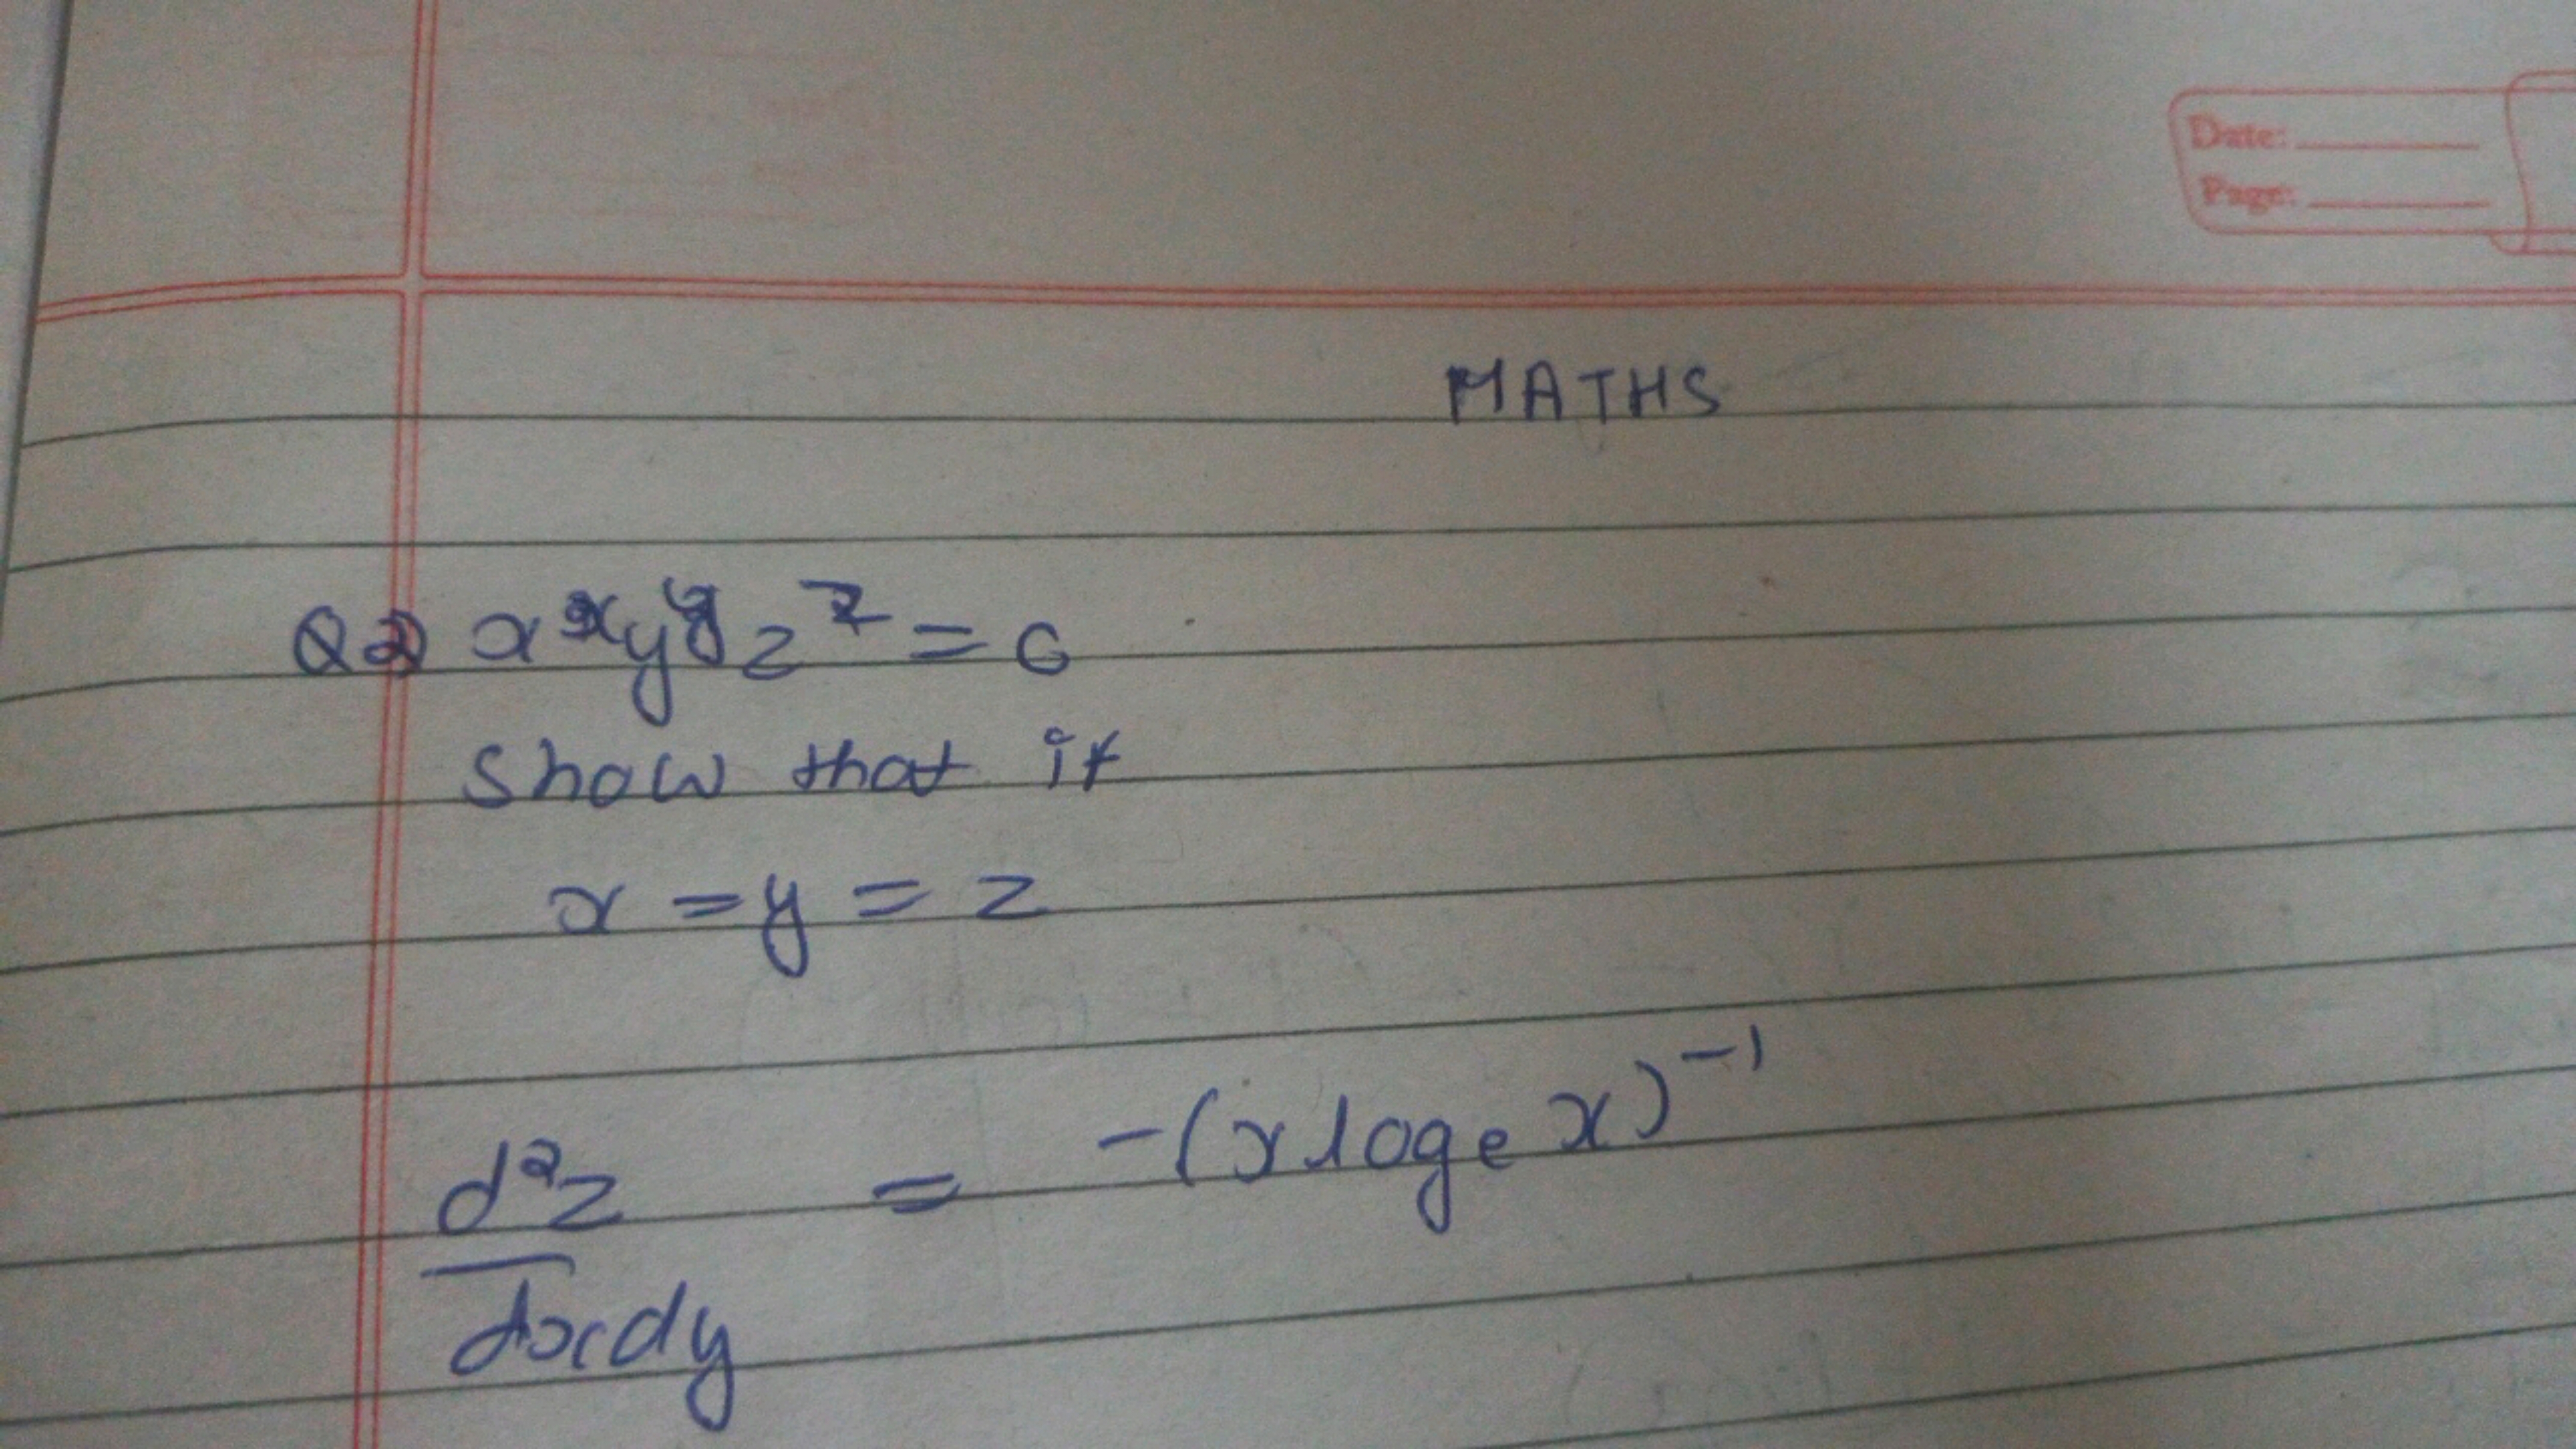 Date:
Page:
MATHS
Q2) x^x y^y z^z = c
Show that if
x = y = z
d²z/dxdy = -(x log_e x)^-1